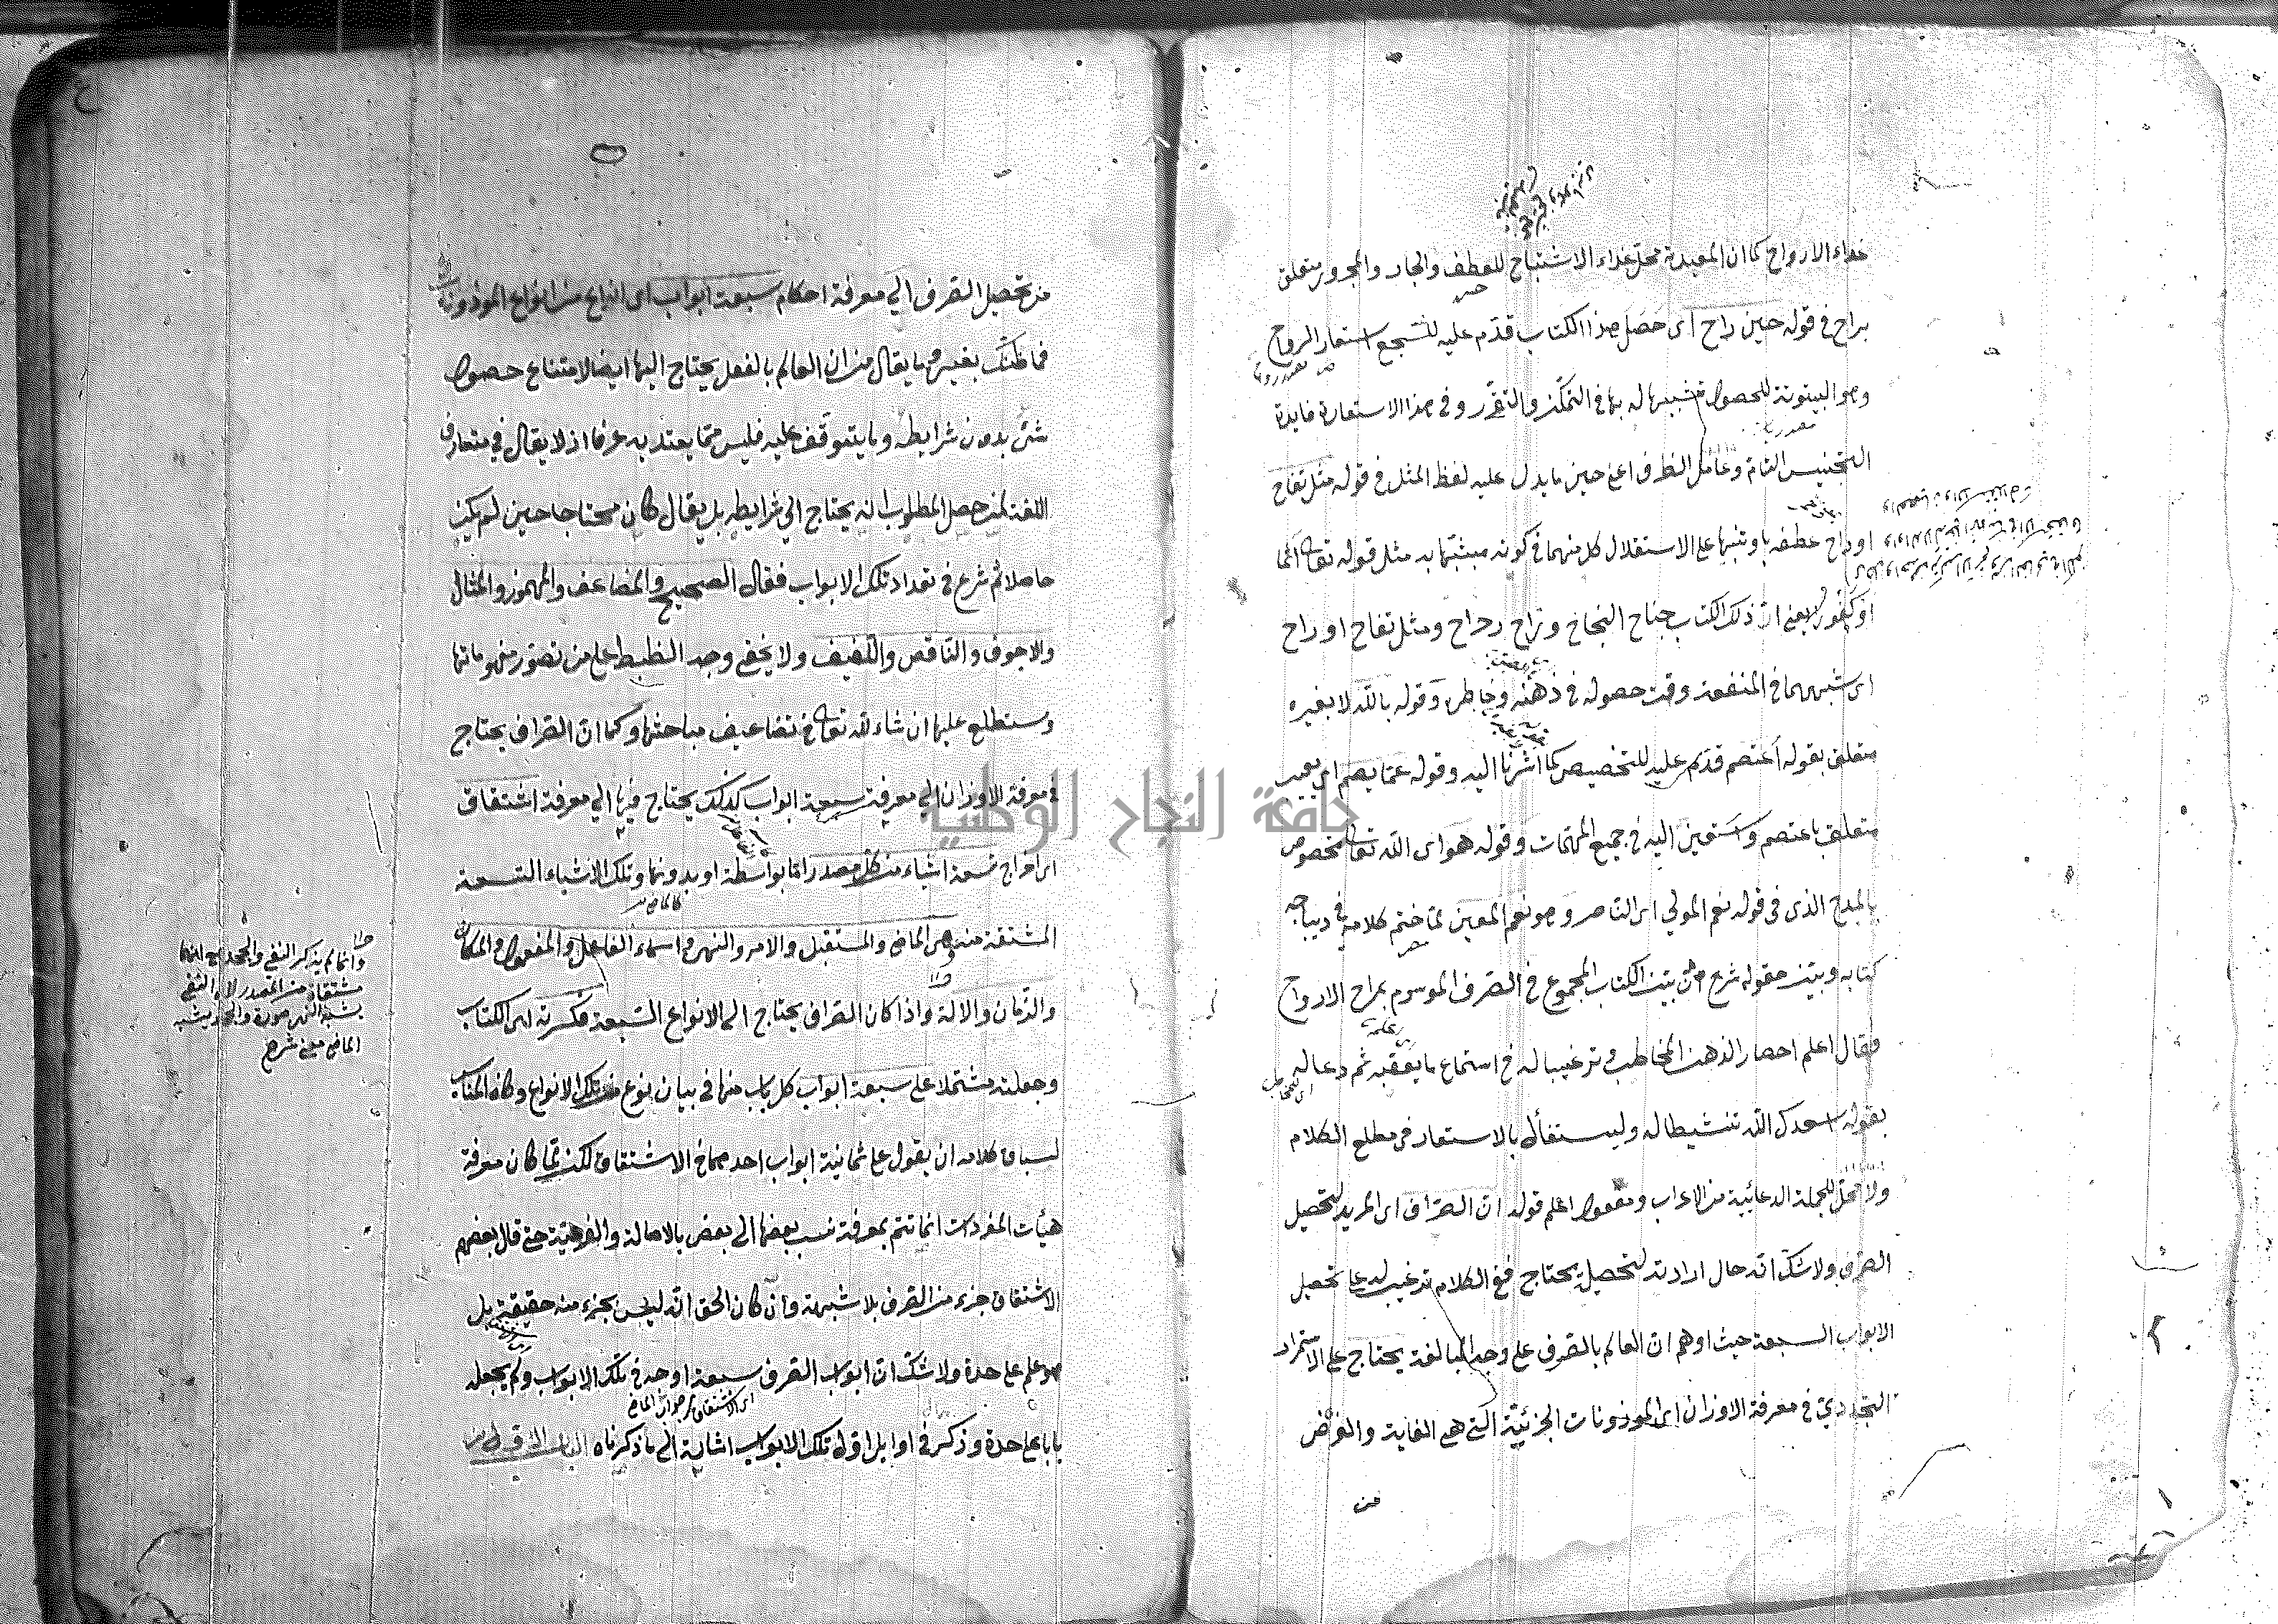 غذاء الارواح كما ان المعدة محل غذاء الاشباح للعطف والجار والمجرور متعلق
براح فى قوله حين راح اى حصل هذا الكتاب قدم عليه للسجع استعار الرواح
وهو البيتوتة للحصول تشبيها له بها فى التمكن والتقرر وفى هذا الاستعارة فايدة
التجنيس التام وعامل الظرف اعنى حين مايدل عليه لفظ المثل فى قوله مثل تفاح
او راح عطفه باو تنبيها على الاستقلال كل منهما فى كونه مشبها به مثل قوله تعالى آثما
او كفورا يعنى ان ذلك الكتاب جناح النجاح وراح رحراح ومثل تفاح او راح
اى شبههما فى المنفعة وقت حصوله فى ذهنه وخاطره وقوله بالله لا بغيره
متعلق بقوله اعتصم قدم عليه للتخصيص كما اشرنا اليه وقوله عما يصم اى يعيب
متعلق باعتصم واستعين اليه فى جميع المهمات وقوله هو اى الله تعالى مخصوص
بالمدح الذى فى قوله نعم المولى اى الناصر وهو نعم المعين لما ختم كلامه فى ديباجه
كتابه وبين حقوله شرع فى الكتاب المجموع فى الصرف الموسوم بمراح الارواح
فقال اعلم احضارا لذهن المخاطب وترغيبا له فى استماع ما يعقبه ثم دعا له
اى للمخاطب
بقوله اسعدك الله تنشيطا له وليستفأل بالاسعاد فى مطلع الكلام
ولا محل للجملة الدعائية من الاعراب ومفعول اعلم قوله ان الصراف اى المريد لتحصيل
الصرف ولا شك انه حال ارادته لتحصيله يحتاج ففى الكلام ترغيب له على تحصيل
الابواب السبعة حيث اوهم ان العالم بالصرف على وجه المبالغة يحتاج على الاستمرار
التجددى فى معرفة الاوزان اى الموزونات الجزئية التى هى الغاية والغرض
من
من تحصيل الصرف الى معرفة احكام سبعة ابواب اى انواع من انواع الموزونات
فما ظنك بغيره وما يقال من ان العالم بالفعل يحتاج اليها ايضا لامتناع حصول
شئ بدون شرايطه وما يتوقف عليه فليس مما يعتد به عرفا اذ لا يقال فى متعارف
اللغة لمن حصل المطلوب انه يحتاج الى شرايطه بل يقال كان محتاجا حين لم يكن
حاصلا ثم شرع فى تعداد تلك الابواب فقال الصحيح والمضاعف والمهموز والمثال
والاجوف والناقص واللفيف ولا يخفى وجه الضبط على من تصور مفهوماتها
وستطلع عليها ان شاء الله تعالى فى تضاعيف مباحثها وكما ان الصراف يحتاج
فى معرفة الاوزان الى معرفة سبعة ابواب كذلك يحتاج فيها الى معرفة اشتقاق
اى اخراج تسعة اشياء من كل مصدر اما بواسطة او بدونها وتلك الاشياء التسعة
المشتقة منه هى الماضى والمستقبل والامر والنهى واسماء الفاعل والمفعول والمكان
والزمان والالة واذا كان الصراف يحتاج الى الانواع السبعة فكسرته اى الكتاب
وجعلته مشتملا على سبعة ابواب كل باب منها فى بيان نوع من تلك الانواع وكان المناسب
لسياق كلامه ان يقول على ثمانية ابواب احدها فى الاشتقاق لكن لما كان معرفة
هيأت المفردات انما تتم بمعرفة نسب بعضها الى بعض بالاصالة والفرعية حتى قال بعضهم
الاشتقاق جزء من الصرف بلا شبهة وان كان الحق انه ليس بجزء منه حقيقة بل
هو علم على حدة ولا شك ان ابواب الصرف سبعة اوجه فى تلك الابواب ولم يجعله
بابا على حدة وذكر فى اوايل اول تلك الابواب اشارة الى ما ذكرناه الباب الاول فى
وانما لم يذكر النفى والجحد مع انهما
مشتقان من المصدر لان النفى
يشبه النهى صورة والجحد يشبه
الماضى معنى شرح
جامعة النجاح الوطنية